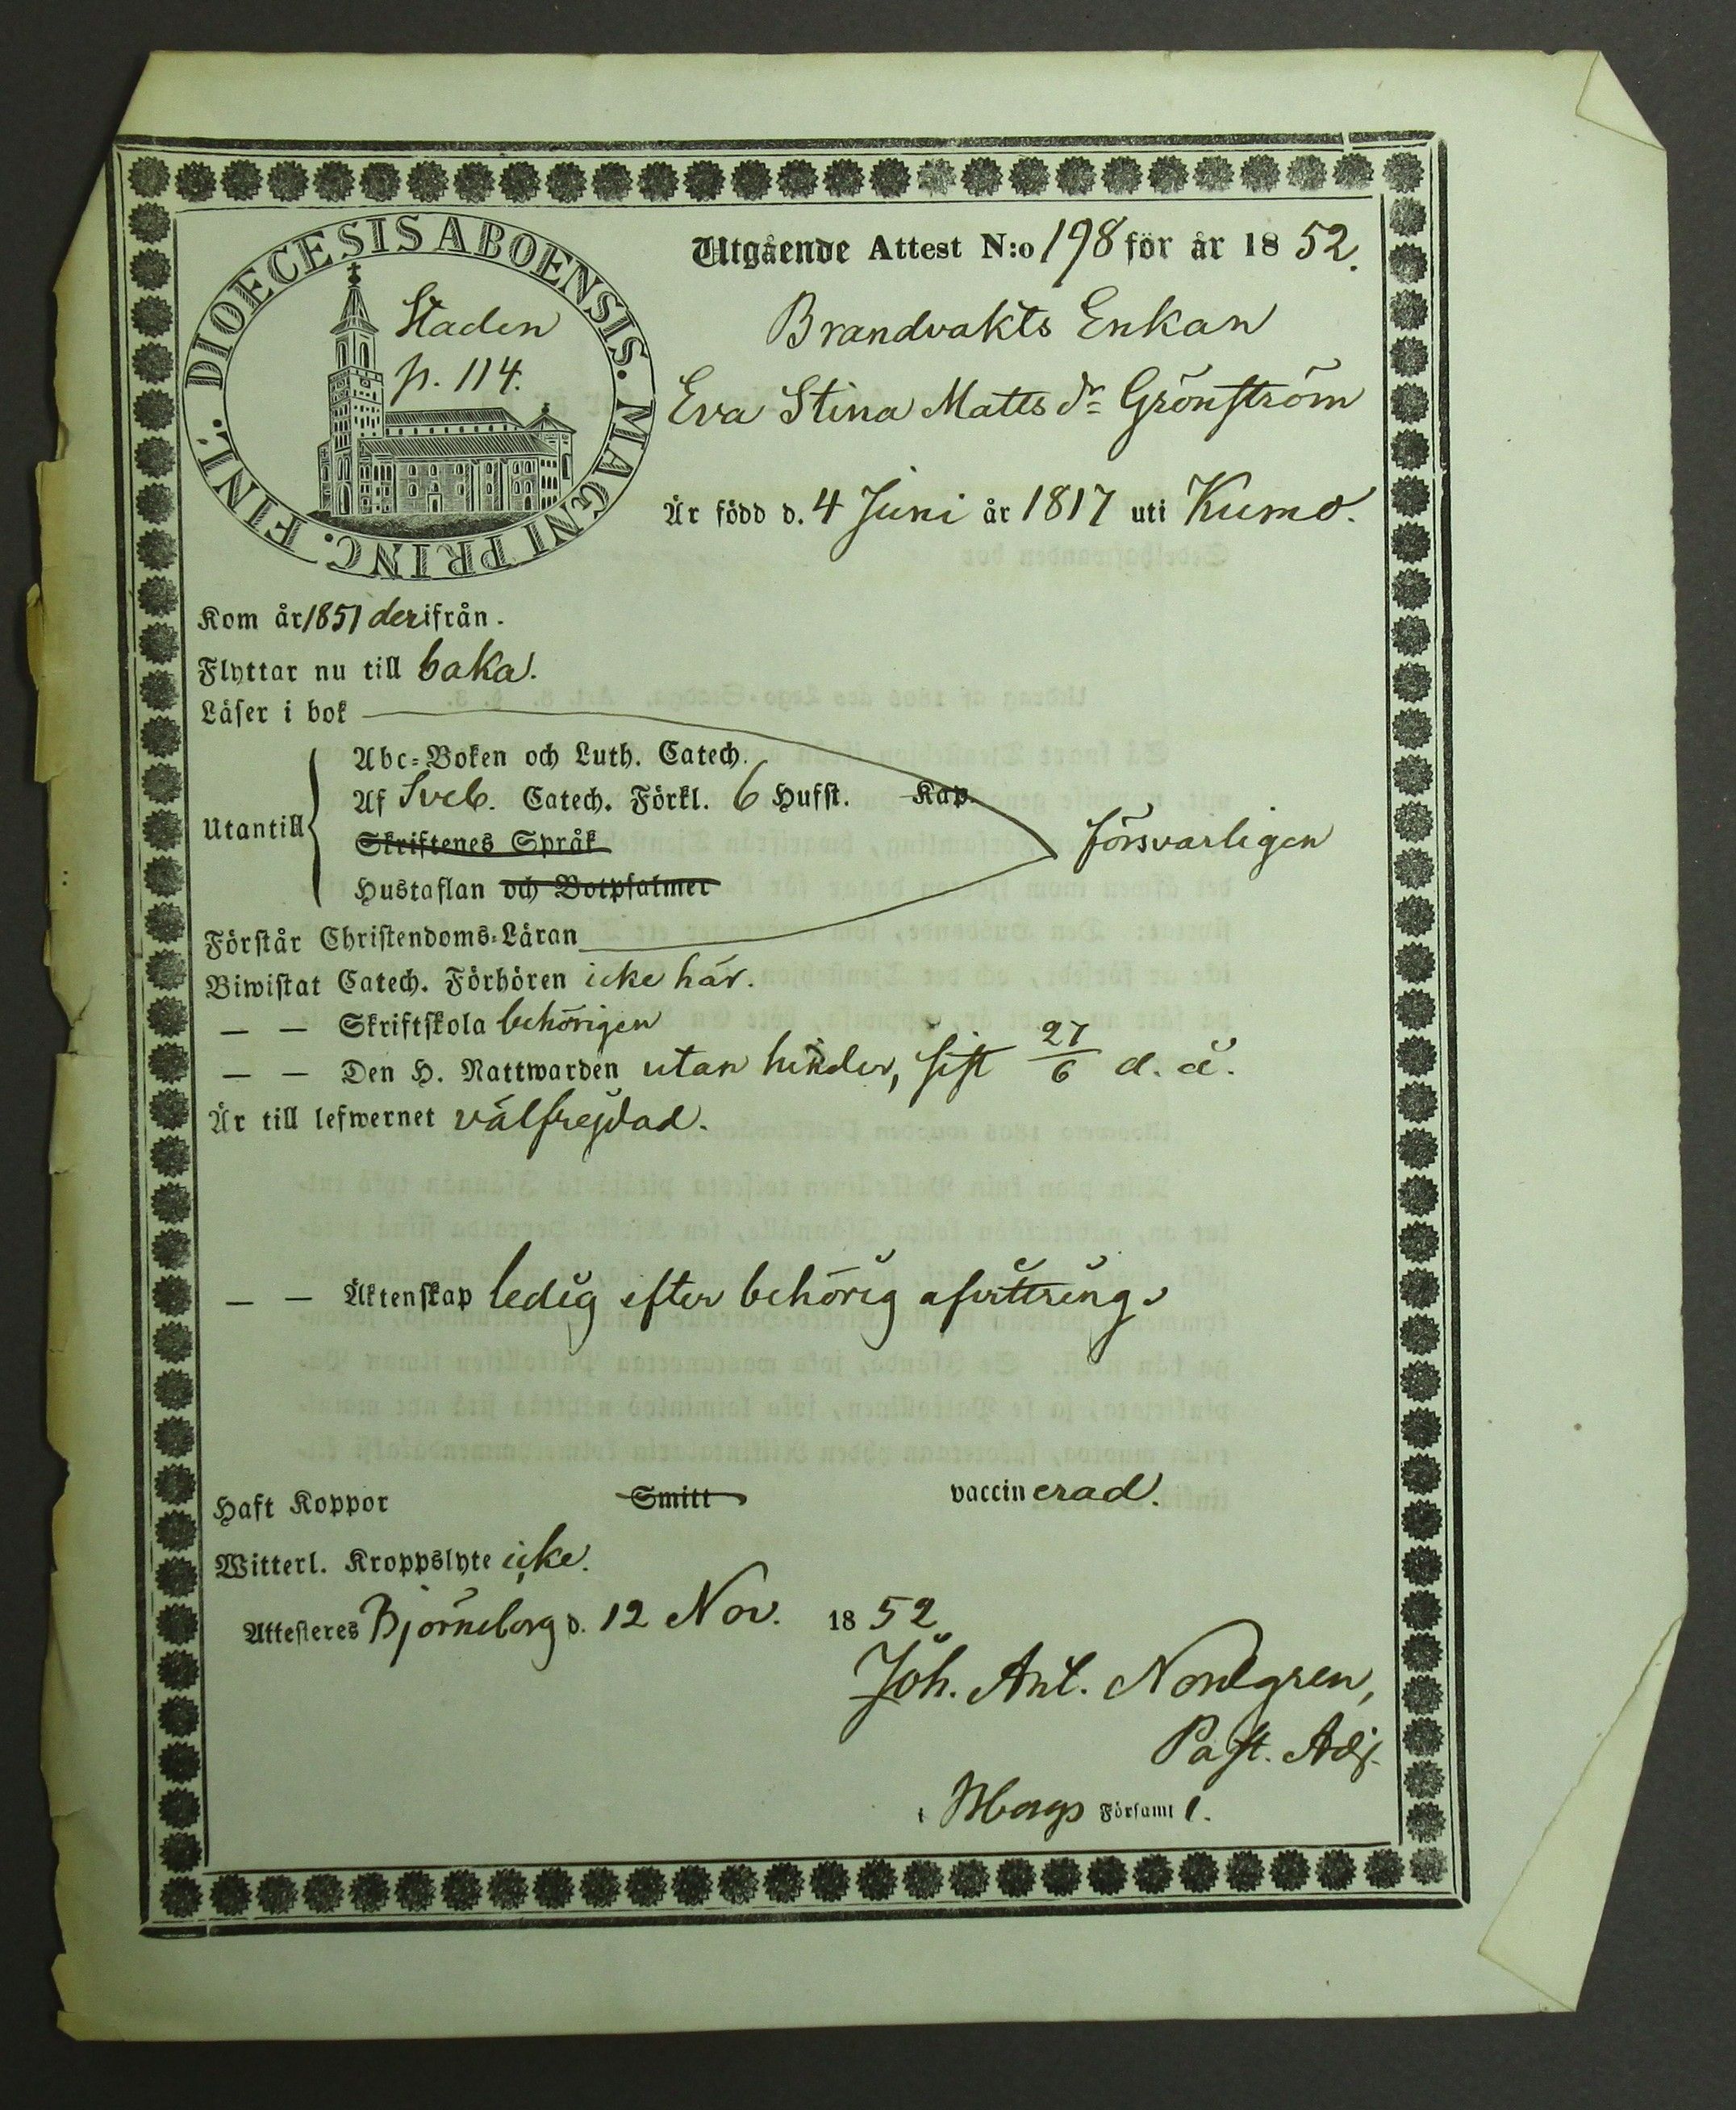 DIOECESIS ABOENSIS. MAGNI PRINC. FINL.
Staden
p. 114.
Utgående Attest N:o 198 för år 1852.
Brandvakts Enkan
Eva Stina Matts dr Grönström
Är född d. 4 Juni år 1817 uti Kumo.
Kom år 1851 derifrån.
Flyttar nu till baka.
Läser i bok
Abc-Boken och Luth. Catech.
Af Sveb. Catech. Förkl. 6 Hufst. Kap.
Utantill försvarligen
Skriftenes Språk
Hustaflan och Botpsalmer
Förstår Christendoms-Läran
Biwistat Catech. Förhören icke här.
— — Skriftskola behörigen
— — Den H. Nattwarden utan hinder, sist 27/6 d. å.
Är till lefwernet välfrejdad.
— — Äktenskap ledig efter behörig afvittring.
Haft Koppor Smitt vaccinerad.
Witterl. Kroppslyte icke.
Attesteras Björneborg d. 12 Nov. 1852
Joh. Ant. Nordgren,
Past. Adj.
i Bborgs Församl.